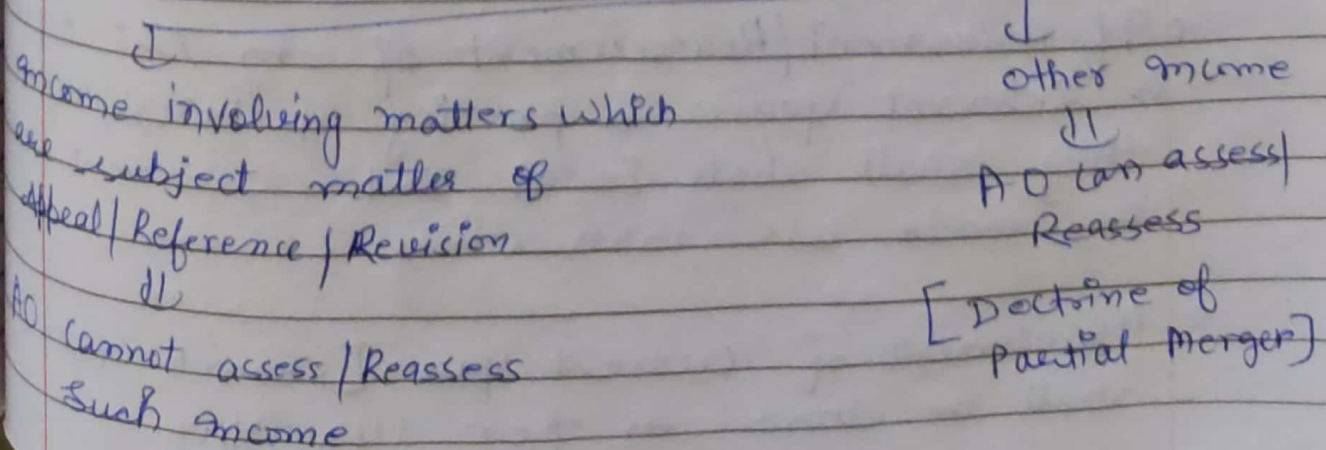 Income involving matters which
are subject matter of
Appeal / Reference / Revision
AO cannot assess / Reassess
Such Income
Other Income
AO can assess /
Reassess
[ Doctrine of
Partial Merger ]